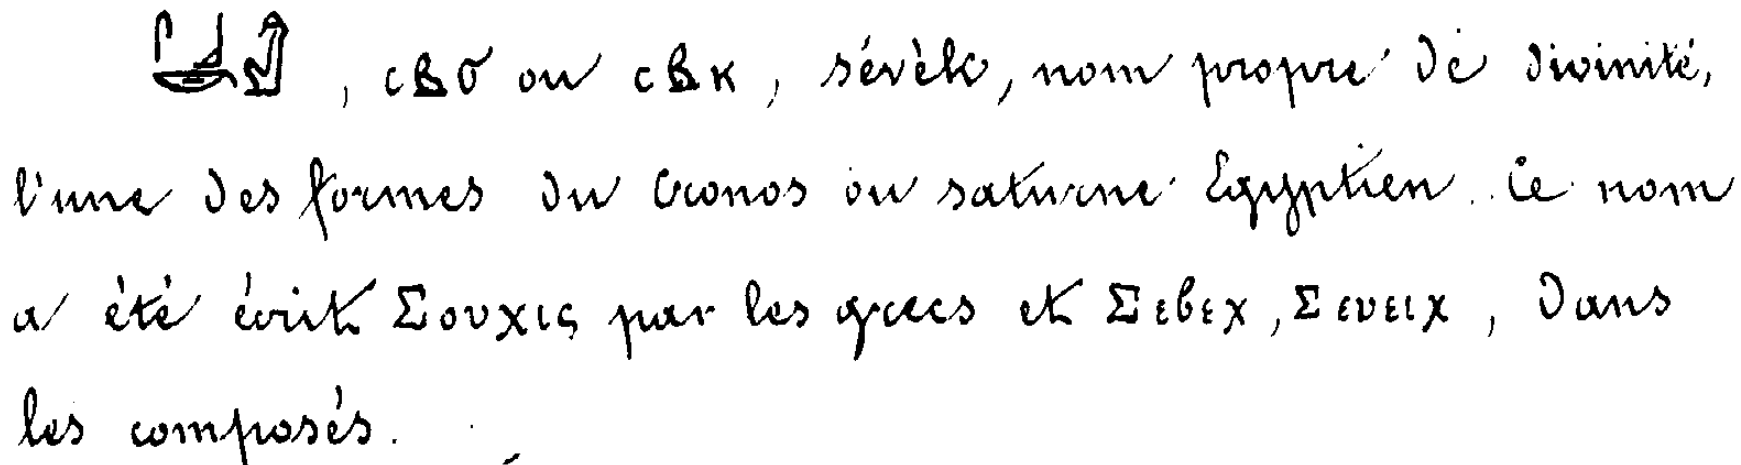 𓋴𓃀𓎡𓀭, ⲥⲃϭ ou ⲥⲃⲕ, sévèk, nom propre de divinité,
l'une des formes du Cronos ou saturne Egyptien. Ce nom
a été écrit Σουχις par les grecs et Σεβεχ, Σευειχ, dans
les composés.